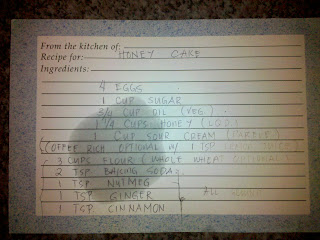 From the kitchen of:
Recipe for: HONEY CAKE
Ingredients:
4 EGGS
1 CUP SUGAR
3/4 CUP OIL (VEG)
1 1/4 CUPS HONEY
1 CUP SOUR CREAM (PAREVE)
(COFFEE RICH OPTIONAL W/ 1 TSP LEMON JUICE)
3 CUPS FLOUR (WHOLE WHEAT OPTIONAL)
2 TSP BAKING SODA
1 TSP NUTMEG
1 TSP GINGER ALL
1 TSP CINNAMON